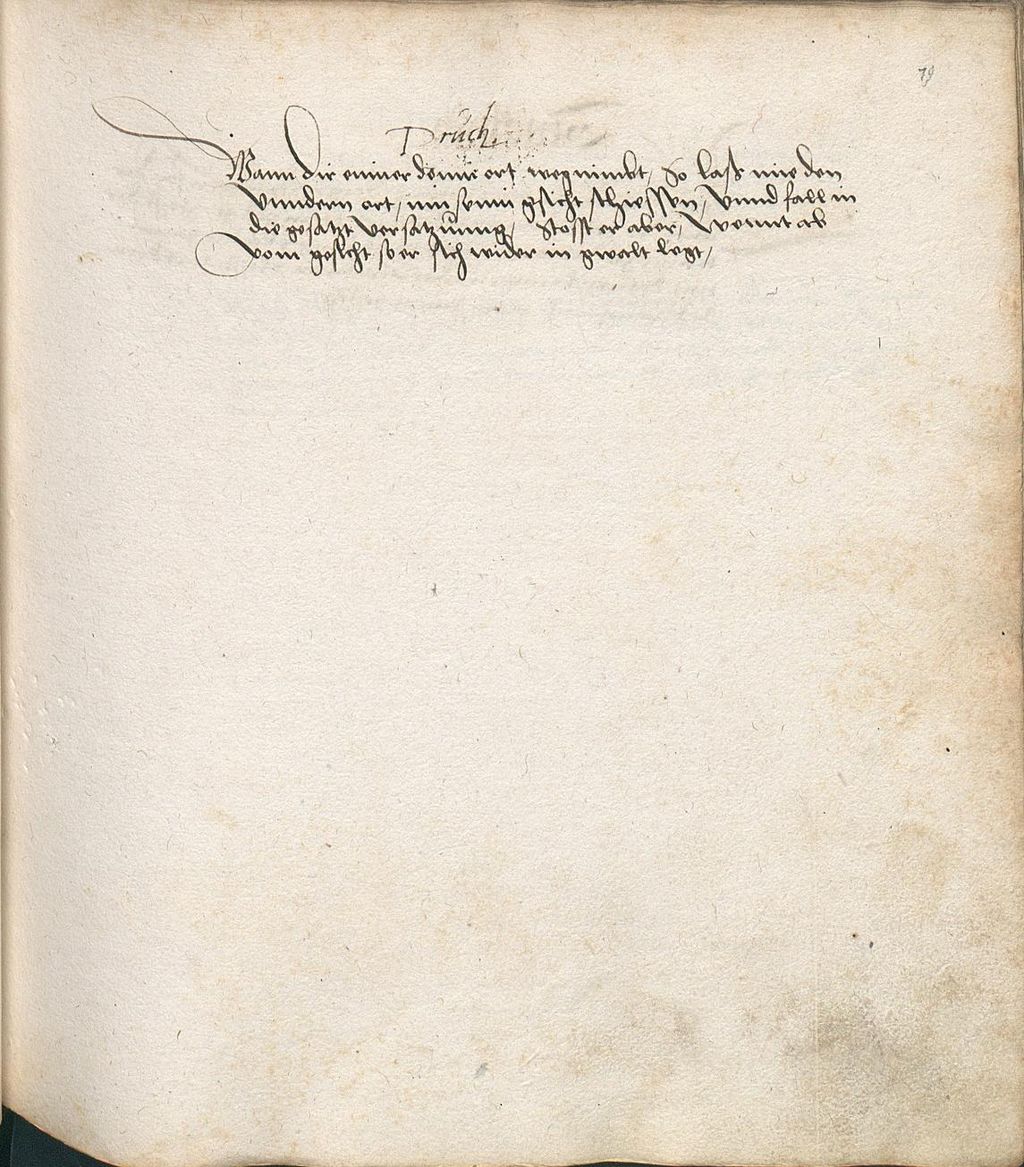 79
Druch
Wann dir einner denn ort wegnimbt, So laß nur den
vnndern ort, inn sein gsicht schiessen, vnnd fall in
die gesatzt versatzúnng, Stosst er aber, Wennt ab
vom gesicht so er sich wider in gwalt legt,